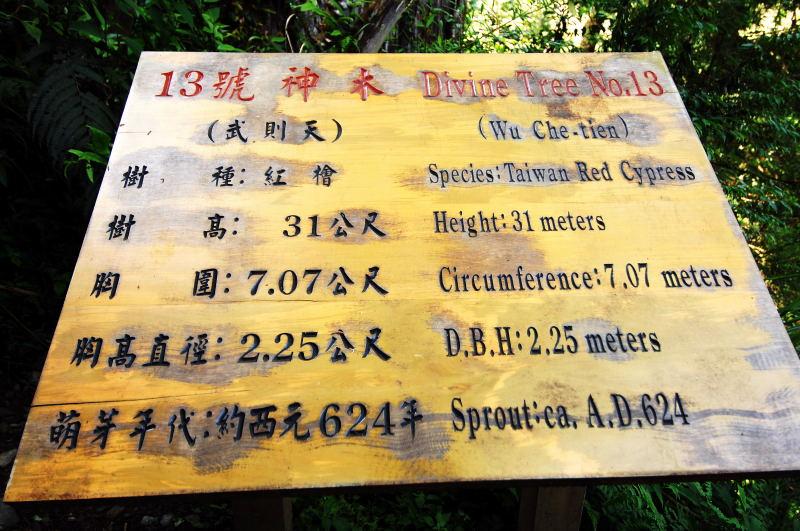 13號 神木 Divine Tree No.13
(武則天) (Wu Che-tien)
樹 種:紅 檜 Species:Taiwan Red Cypress
樹 高: 31公尺 Height:31 meters
胸 圍:7.07公尺 Circumference:7.07 meters
胸高直徑:2.25公尺 D.B.H:2.25 meters
萌芽年代:約西元624年 Sprout:ca. A.D.624